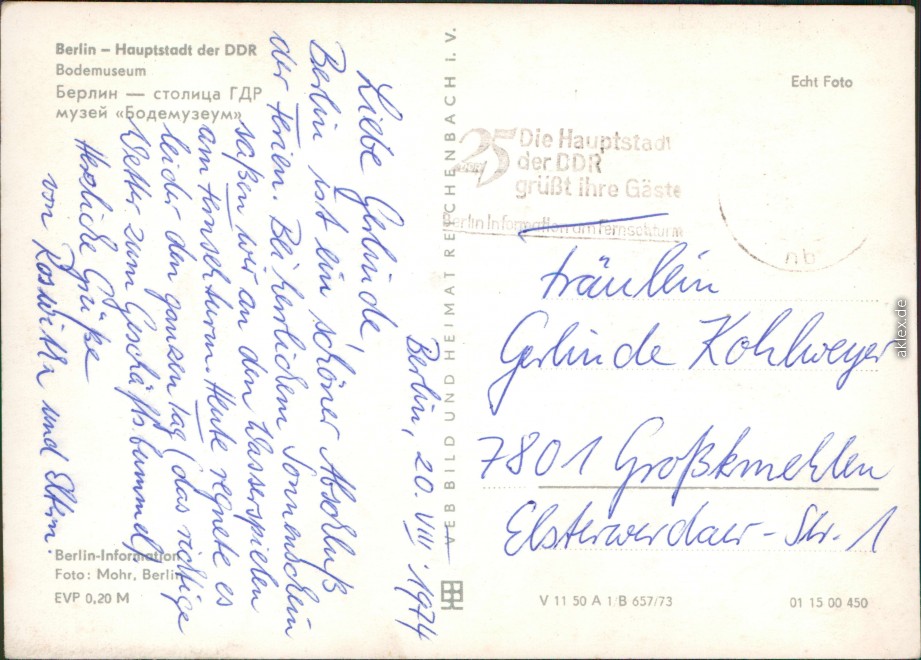 Berlin – Hauptstadt der DDR
Bodemuseum
Берлин — столица ГДР
музей «Бодемузеум»
Berlin, 20. VIII. 1974
Liebe Gerlinde,
Berlin ist ein schöner Abschluß
der Ferien. Bei herrlichem Sonnenschein
saßen wir an den Wasserspielen
am Fernsehturm. Heute regnete es
leider den ganzen Tag (das richtige
Wetter zum Geschäftsbummel)
Herzliche Grüße
von Roswitha und Eltern.
Berlin-Information
Foto: Mohr, Berlin
EVP 0,20 M
VEB BILD UND HEIMAT REICHENBACH I. V.
Echt Foto
25 Die Hauptstadt
der DDR
grüßt ihre Gäste
Berlin Information am Fernsehturm
Fräulein
Gerlinde Kohlweyer
7801 Großkmehlen
Elsterwerdaer-Str. 1
V 11 50 A 1/B 657/73
01 15 00 450
aklex.de